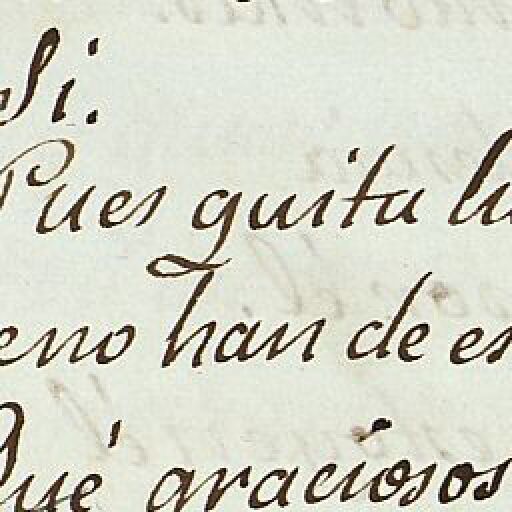 Si.
Pues quita lu
eno han de es
Qué graciosos